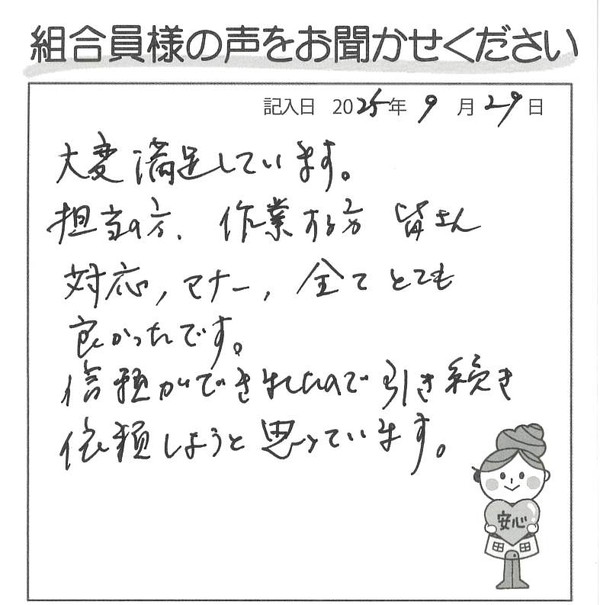 組合員様の声をお聞かせください
記入日 2025年 9月 29日
大変満足しています。
担当の方、作業する方 皆さん
対応，マナー，全てとても
良かったです。
信頼ができましたので引き続き
依頼しようと思っています。
安心